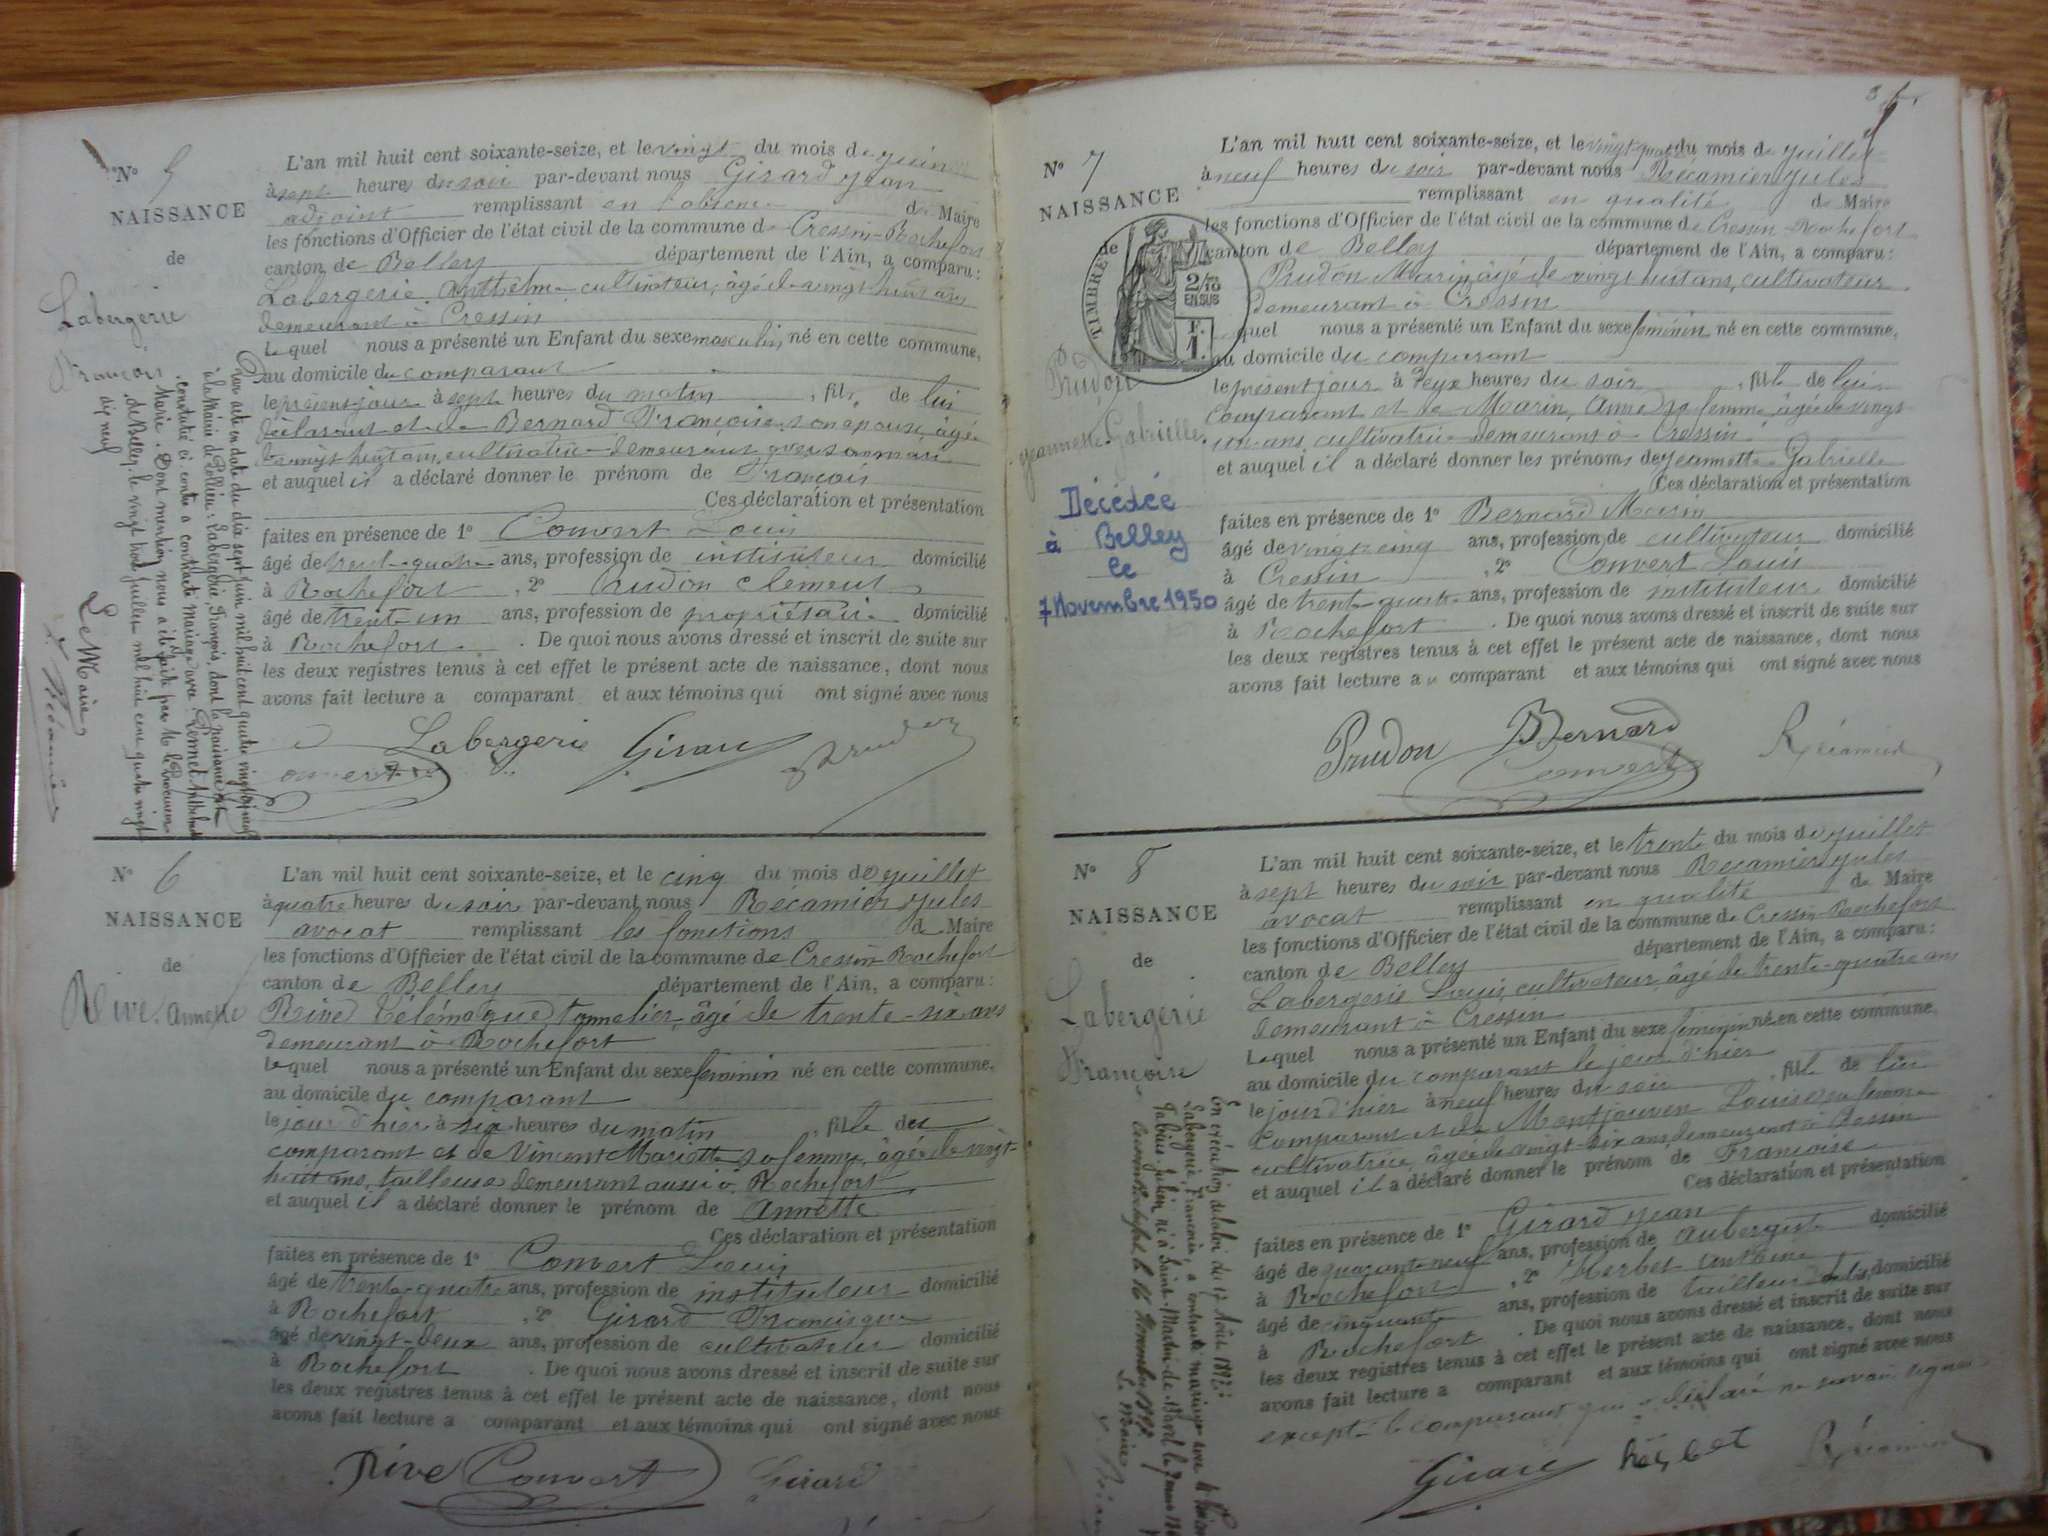 N° 5
NAISSANCE
de
Labergerie
François
L'an mil huit cent soixante-seize, et le vingt du mois de juin
à sept heures du soir par-devant nous Girard Jean
adjoint remplissant en l'absence de Maire
les fonctions d'Officier de l'état civil de la commune de Cressin-Rochefort
canton de Belley département de l'Ain, a comparu:
Labergerie Anthelme cultivateur, âgé de vingt huit ans
demeurant à Cressin
Lequel nous a présenté un Enfant du sexe masculin né en cette commune,
au domicile du comparant
le présent jour à sept heures du matin, fils de lui
déclarant et de Bernard Françoise son épouse, âgée
de vingt huit ans, cultivatrice demeurant avec son mari
et auquel il a déclaré donner le prénom de François
Ces déclaration et présentation
faites en présence de 1° Convert Louis
âgé de trente-quatre ans, profession de instituteur domicilié
à Rochefort, 2° Prudon Clément
âgé de trente un ans, profession de propriétaire domicilié
à Rochefort. De quoi nous avons dressé et inscrit de suite sur
les deux registres tenus à cet effet le présent acte de naissance, dont nous
avons fait lecture a comparant et aux témoins qui ont signé avec nous
Labergerie Girard Prudon
Convert
Par acte en date du dix sept juin mil huit cent quatre vingt dix neuf
à la Mairie de Pollieu: Labergerie, François, dont la naissance est
constatée ci contre a contracté mariage avec
Marie. Dont mention nous a été faite par M. le Procureur
de Belley, le vingt trois juillet mil huit cent quatre vingt
dix neuf
Le Maire
J. Récamier
N° 6
NAISSANCE
de
Rive Annette
L'an mil huit cent soixante-seize, et le cinq du mois de juillet
à quatre heures du soir par-devant nous Récamier Jules
avocat remplissant les fonctions de Maire
les fonctions d'Officier de l'état civil de la commune de Cressin Rochefort
canton de Belley département de l'Ain, a comparu:
Rive Télémaque tonnelier, âgé de trente-six ans
demeurant à Rochefort
Lequel nous a présenté un Enfant du sexe féminin né en cette commune,
au domicile du comparant
le jour d'hier à six heures du matin, fille du
comparant et de Vincent Mariette sa femme, âgée de vingt-
huit ans, tailleuse demeurant aussi à Rochefort
et auquel il a déclaré donner le prénom de Annette
Ces déclaration et présentation
faites en présence de 1° Convert Louis
âgé de trente-quatre ans, profession de instituteur domicilié
à Rochefort, 2° Girard Francisque
âgé de vingt-deux ans, profession de cultivateur domicilié
à Rochefort. De quoi nous avons dressé et inscrit de suite sur
les deux registres tenus à cet effet le présent acte de naissance, dont nous
avons fait lecture a comparant et aux témoins qui ont signé avec nous
Rive Convert Girard
3
N° 7
NAISSANCE
de
TIMBRE
2/10
EN SUS
F.
1.
Prudon
Jeannette Gabrielle
Décédée
à Belley
le
7 Novembre 1950
L'an mil huit cent soixante-seize, et le vingt quatre du mois de juillet
à neuf heures du soir par-devant nous Récamier Jules
remplissant en qualité de Maire
les fonctions d'Officier de l'état civil de la commune de Cressin-Rochefort
canton de Belley département de l'Ain, a comparu:
Prudon Marin, âgé de vingt huit ans, cultivateur
demeurant à Cressin
Lequel nous a présenté un Enfant du sexe féminin né en cette commune,
au domicile du comparant
le présent jour à deux heures du soir, fille de lui
comparant et de Marin, Anne sa femme, âgée de vingt
un ans, cultivatrice demeurant à Cressin
et auquel il a déclaré donner les prénoms de Jeannette Gabrielle
Ces déclaration et présentation
faites en présence de 1° Bernard Marin
âgé de vingt cinq ans, profession de cultivateur domicilié
à Cressin, 2° Convert Louis
âgé de trente-quatre ans, profession de instituteur domicilié
à Rochefort. De quoi nous avons dressé et inscrit de suite sur
les deux registres tenus à cet effet le présent acte de naissance, dont nous
avons fait lecture au comparant et aux témoins qui ont signé avec nous
Prudon Bernard Récamier
Convert
N° 8
NAISSANCE
de
Labergerie
Françoise
L'an mil huit cent soixante-seize, et le trente du mois de juillet
à sept heures du soir par-devant nous Récamier Jules
avocat remplissant en qualité de Maire
les fonctions d'Officier de l'état civil de la commune de Cressin-Rochefort
canton de Belley département de l'Ain, a comparu:
Labergerie Louis, cultivateur, âgé de trente-quatre ans
demeurant à Cressin
Lequel nous a présenté un Enfant du sexe féminin né en cette commune,
au domicile du comparant le jour d'hier
le jour d'hier à neuf heures du soir, fille de lui
comparant et de Montjouvent Louise sa femme
cultivatrice, âgée de vingt-six ans, demeurant à Cressin
et auquel il a déclaré donner le prénom de Françoise
Ces déclaration et présentation
faites en présence de 1° Girard Jean
âgé de quarante-neuf ans, profession de aubergiste domicilié
à Rochefort, 2° Herbet
âgé de cinquante ans, profession de tailleur domicilié
à Rochefort. De quoi nous avons dressé et inscrit de suite sur
les deux registres tenus à cet effet le présent acte de naissance, dont nous
avons fait lecture a comparant et aux témoins qui ont signé avec nous
excepté le comparant qui a déclaré ne savoir signer
Girard herbet Récamier
En exécution de la loi du 17 Août 1897:
Labergerie, Françoise, a contracté mariage avec
Julien né à Saint-Martin-de
Cressin Rochefort, le 16 Novembre
Le Maire
J. Récamier